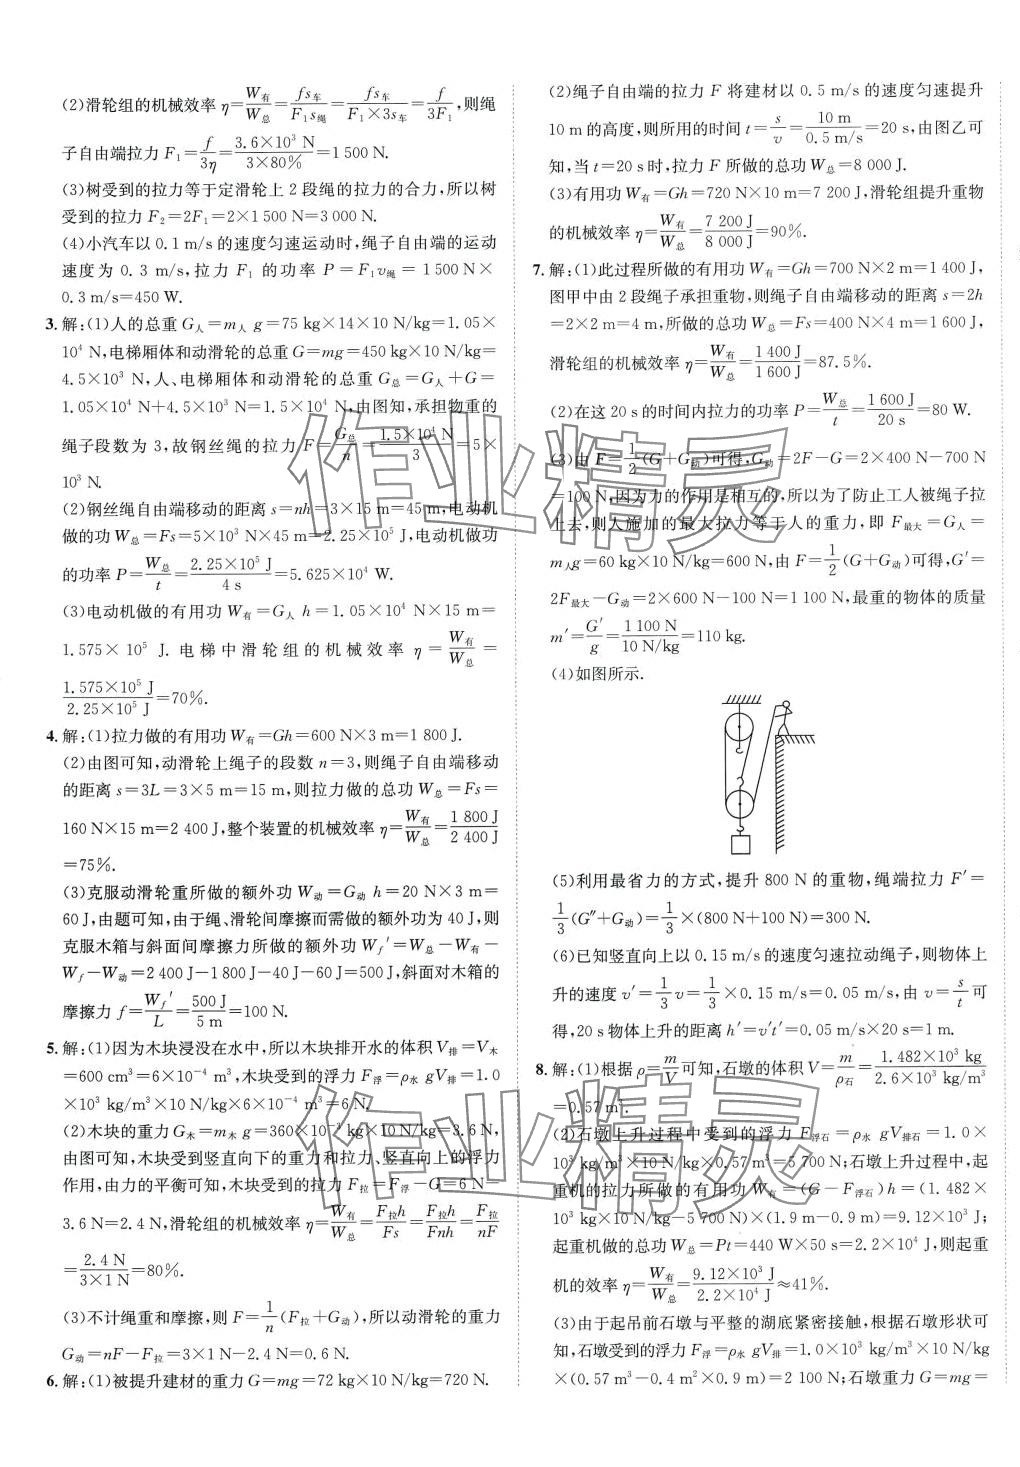 (2)滑轮组的机械效率 η=W有/W总=fs车/F₁s绳=fs车/F₁×3s车=f/3F₁,则绳
子自由端拉力 F₁=f/3η=3.6×10³ N/3×80%=1 500 N.
(3)树受到的拉力等于定滑轮上 2 段绳的拉力的合力,所以树
受到的拉力 F₂=2F₁=2×1 500 N=3 000 N.
(4)小汽车以 0.1 m/s 的速度匀速运动时,绳子自由端的运动
速度为 0.3 m/s,拉力 F₁ 的功率 P=F₁v绳=1 500 N×
0.3 m/s=450 W.
3. 解:(1)人的总重 G人=m人 g=75 kg×14×10 N/kg=1.05×
10⁴ N,电梯厢体和动滑轮的总重 G=mg=450 kg×10 N/kg=
4.5×10³ N,人、电梯厢体和动滑轮的总重 G总=G人+G=
1.05×10⁴ N+4.5×10³ N=1.5×10⁴ N,由图知,承担物重的
绳子段数为 3,故钢丝绳的拉力 F=G总/n=1.5×10⁴ N/3=5×
10³ N.
(2)钢丝绳自由端移动的距离 s=nh=3×15 m=45 m,电动机
做的功 W总=Fs=5×10³ N×45 m=2.25×10⁵ J,电动机做功
的功率 P=W总/t=2.25×10⁵ J/4 s=5.625×10⁴ W.
(3)电动机做的有用功 W有=G人 h=1.05×10⁴ N×15 m=
1.575×10⁵ J. 电梯中滑轮组的机械效率 η=W有/W总=
1.575×10⁵ J/2.25×10⁵ J=70%.
4. 解:(1)拉力做的有用功 W有=Gh=600 N×3 m=1 800 J.
(2)由图可知,动滑轮上绳子的段数 n=3,则绳子自由端移动
的距离 s=3L=3×5 m=15 m,则拉力做的总功 W总=Fs=
160 N×15 m=2 400 J,整个装置的机械效率 η=W有/W总=1 800 J/2 400 J
=75%.
(3)克服动滑轮重所做的额外功 W动=G动 h=20 N×3 m=
60 J,由题可知,由于绳、滑轮间摩擦而需做的额外功为 40 J,则
克服木箱与斜面间摩擦力所做的额外功 Wf′=W总-W有-
Wf-W动=2 400 J-1 800 J-40 J-60 J=500 J,斜面对木箱的
摩擦力 f=Wf′/L=500 J/5 m=100 N.
5. 解:(1)因为木块浸没在水中,所以木块排开水的体积 V排=V木
=600 cm³=6×10⁻⁴ m³,木块受到的浮力 F浮=ρ水 gV排=1.0
×10³ kg/m³×10 N/kg×6×10⁻⁴ m³=6 N.
(2)木块的重力 G木=m木 g=360×10⁻³ kg×10 N/kg=3.6 N,
由图可知,木块受到竖直向下的重力和拉力、竖直向上的浮力
作用,由力的平衡可知,木块受到的拉力 F拉=F浮-G=6 N-
3.6 N=2.4 N,滑轮组的机械效率 η=W有/W总=F拉h/Fs=F拉h/Fnh=F拉/nF
=2.4 N/3×1 N=80%.
(3)不计绳重和摩擦,则 F=1/n(F拉+G动),所以动滑轮的重力
G动=nF-F拉=3×1 N-2.4 N=0.6 N.
6. 解:(1)被提升建材的重力 G=mg=72 kg×10 N/kg=720 N.
(2)绳子自由端的拉力 F 将建材以 0.5 m/s 的速度匀速提升
10 m 的高度,则所用的时间 t=s/v=10 m/0.5 m/s=20 s,由图乙可
知,当 t=20 s 时,拉力 F 所做的总功 W总=8 000 J.
(3)有用功 W有=Gh=720 N×10 m=7 200 J,滑轮组提升重物
的机械效率 η=W有/W总=7 200 J/8 000 J=90%.
7. 解:(1)此过程所做的有用功 W有=Gh=700 N×2 m=1 400 J,
图甲中由 2 段绳子承担重物,则绳子自由端移动的距离 s=2h
=2×2 m=4 m,所做的总功 W总=Fs=400 N×4 m=1 600 J,
滑轮组的机械效率 η=W有/W总=1 400 J/1 600 J=87.5%.
(2)在这 20 s 的时间内拉力的功率 P=W总/t=1 600 J/20 s=80 W.
(3)由 F=1/2(G+G动)可得,G动=2F-G=2×400 N-700 N
=100 N,因为力的作用是相互的,所以为了防止工人被绳子拉
上去,则人施加的最大拉力等于人的重力,即 F最大=G人=
m人g=60 kg×10 N/kg=600 N,由 F=1/2(G+G动)可得,G′=
2F最大-G动=2×600 N-100 N=1 100 N,最重的物体的质量
m′=G′/g=1 100 N/10 N/kg=110 kg.
(4)如图所示.
(5)利用最省力的方式,提升 800 N 的重物,绳端拉力 F′=
1/3(G″+G动)=1/3×(800 N+100 N)=300 N.
(6)已知竖直向上以 0.15 m/s 的速度匀速拉动绳子,则物体上
升的速度 v′=1/3v=1/3×0.15 m/s=0.05 m/s,由 v=s/t可
得,20 s 物体上升的距离 h′=v′t′=0.05 m/s×20 s=1 m.
8. 解:(1)根据 ρ=m/V可知,石墩的体积 V=m/ρ石=1.482×10³ kg/2.6×10³ kg/m³
=0.57 m³.
(2)石墩上升过程中受到的浮力 F浮石=ρ水 gV排石=1.0×
10³ kg/m³×10 N/kg×0.57 m³=5 700 N;石墩上升过程中,起
重机的拉力所做的有用功 W有=(G-F浮石)h=(1.482×
10³ kg×10 N/kg-5 700 N)×(1.9 m-0.9 m)=9.12×10³ J;
起重机做的总功 W总=Pt=440 W×50 s=2.2×10⁴ J,则起重
机的效率 η=W有/W总=9.12×10³ J/2.2×10⁴ J≈41%.
(3)由于起吊前石墩与平整的湖底紧密接触,根据石墩形状可
知,石墩受到的浮力 F浮=ρ水 gV排=1.0×10³ kg/m³×10 N/kg
×(0.57 m³-0.4 m²×0.9 m)=2 100 N;石墩重力 G=mg=
作业精灵
作业精灵